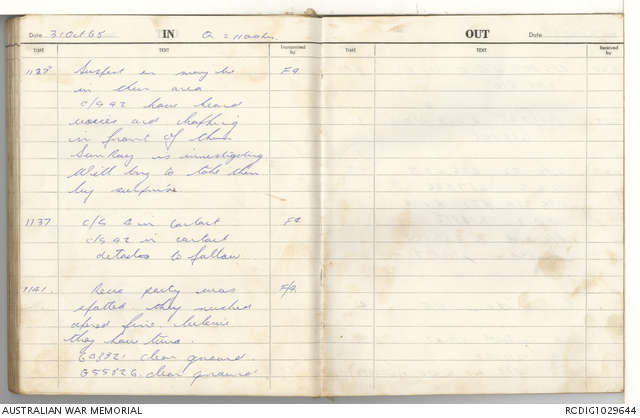 Date 31 Oct 65 IN
TIME TEXT Transmitted by
1127 Suspect en may be F9
in their area
C/S 42 have heard
voices and chopping
in front of them
Sun Ray is investigating
Will try to take them
by surprise
1137 C/S 4 in contact F9
C/S 42 in contact
details to follow
1141 Recce party was F/9
spotted they rushed
opend fire believe
they have two.
clear ground.
clear ground
OUT Date
TIME TEXT Received by
AUSTRALIAN WAR MEMORIAL
RCDIG1029644